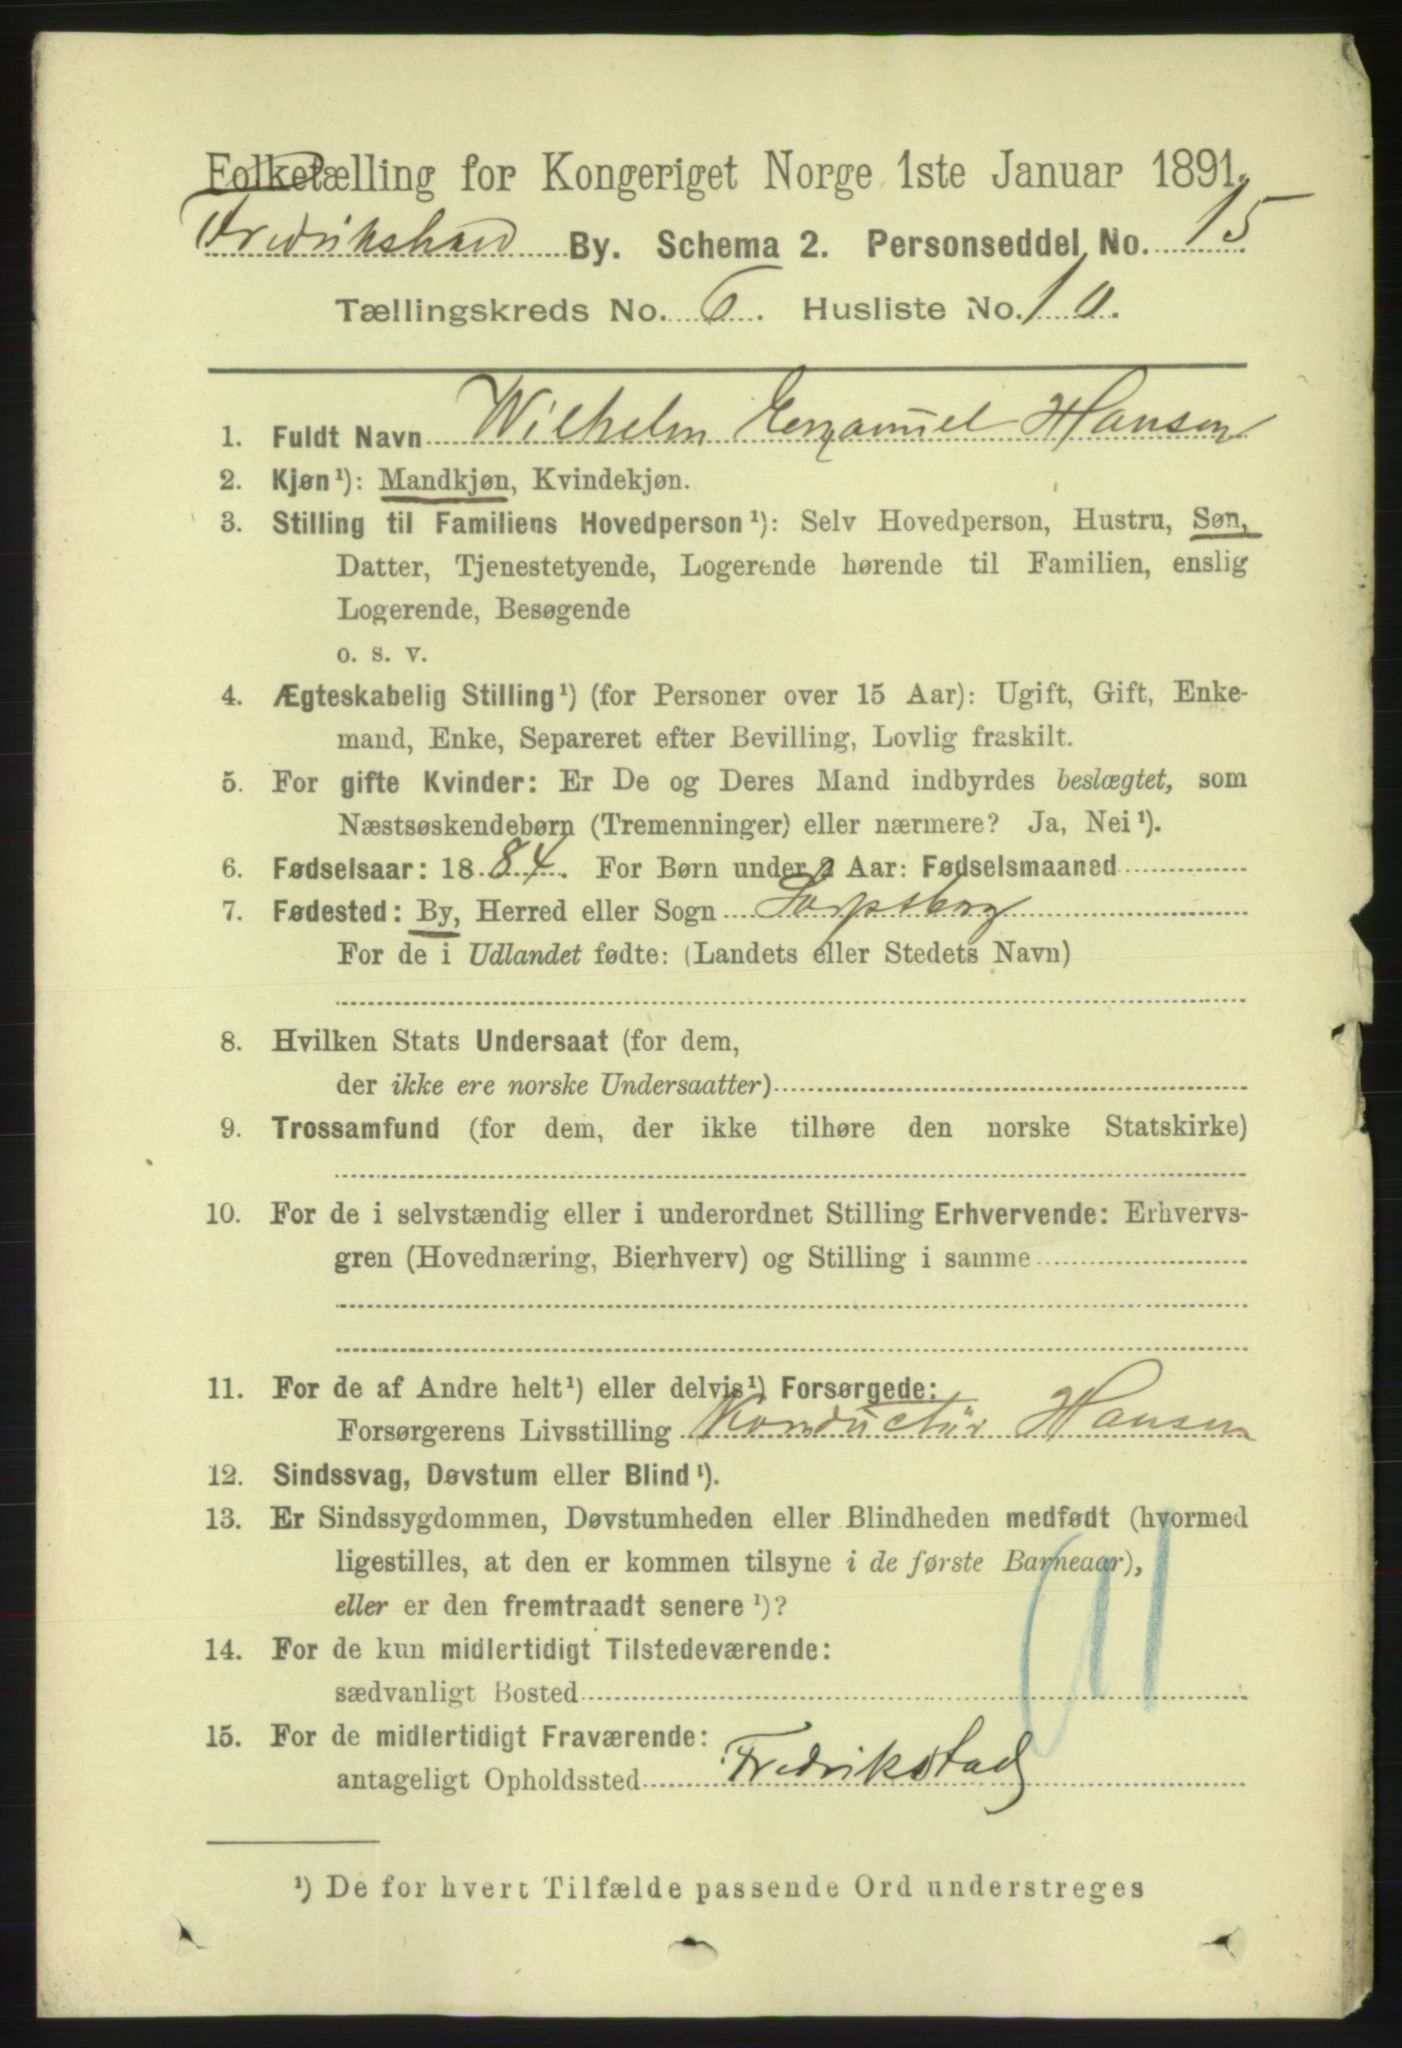 Folketælling for Kongeriget Norge 1ste Januar 1891.
Fredrikshald By. Schema 2. Personseddel No. 15
Tællingskreds No. 6. Husliste No. 10.
1. Fuldt Navn Wilhelm Emanuel Hansen
2. Kjøn¹): Mandkjøn, Kvindekjøn.
3. Stilling til Familiens Hovedperson¹): Selv Hovedperson, Hustru, Søn,
Datter, Tjenestetyende, Logerende hørende til Familien, enslig
Logerende, Besøgende
o. s. v.
4. Ægteskabelig Stilling¹) (for Personer over 15 Aar): Ugift, Gift, Enke-
mand, Enke, Separeret efter Bevilling, Lovlig fraskilt.
5. For gifte Kvinder: Er De og Deres Mand indbyrdes beslægtet, som
Næstsøskendebørn (Tremenninger) eller nærmere? Ja, Nei¹).
6. Fødselsaar: 1884. For Børn under 2 Aar: Fødselsmaaned
7. Fødested: By, Herred eller Sogn Sarpsborg
For de i Udlandet fødte: (Landets eller Stedets Navn)
8. Hvilken Stats Undersaat (for dem,
der ikke ere norske Undersaatter)
9. Trossamfund (for dem, der ikke tilhøre den norske Statskirke)
10. For de i selvstændig eller i underordnet Stilling Erhvervende: Erhvervs-
gren (Hovednæring, Bierhverv) og Stilling i samme
11. For de af Andre helt¹) eller delvis¹) Forsørgede:
Forsørgerens Livsstilling Konductür Hansen
12. Sindssvag, Døvstum eller Blind¹).
13. Er Sindssygdommen, Døvstumheden eller Blindheden medfødt (hvormed
ligestilles, at den er kommen tilsyne i de første Barneaar),
eller er den fremtraadt senere¹)?
14. For de kun midlertidigt Tilstedeværende:
sædvanligt Bosted
15. For de midlertidigt Fraværende:
antageligt Opholdssted Fredrikstad
¹) De for hvert Tilfælde passende Ord understreges